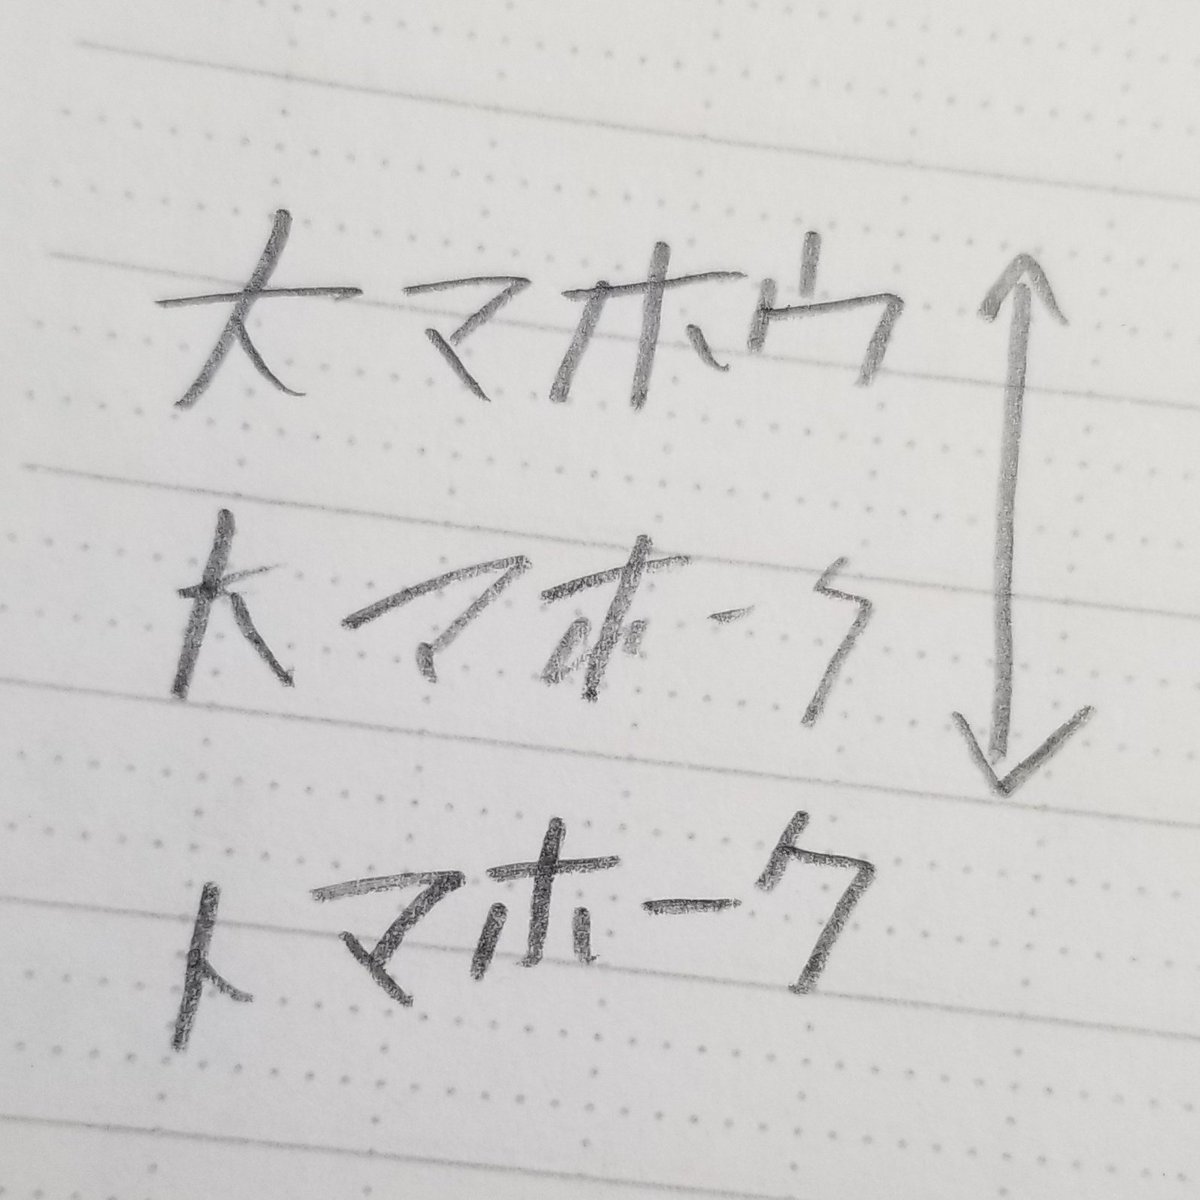 大マホウ
大マホーク
トマホーク